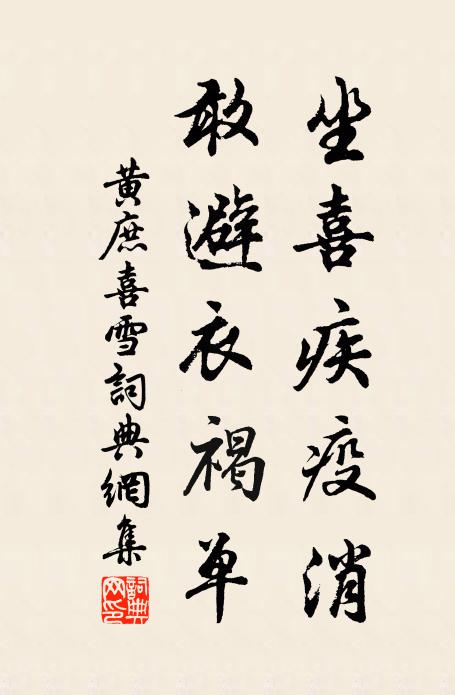 坐喜疾疫消
敢避衣褐单
黄庶喜雪詞典網集
詞典网印